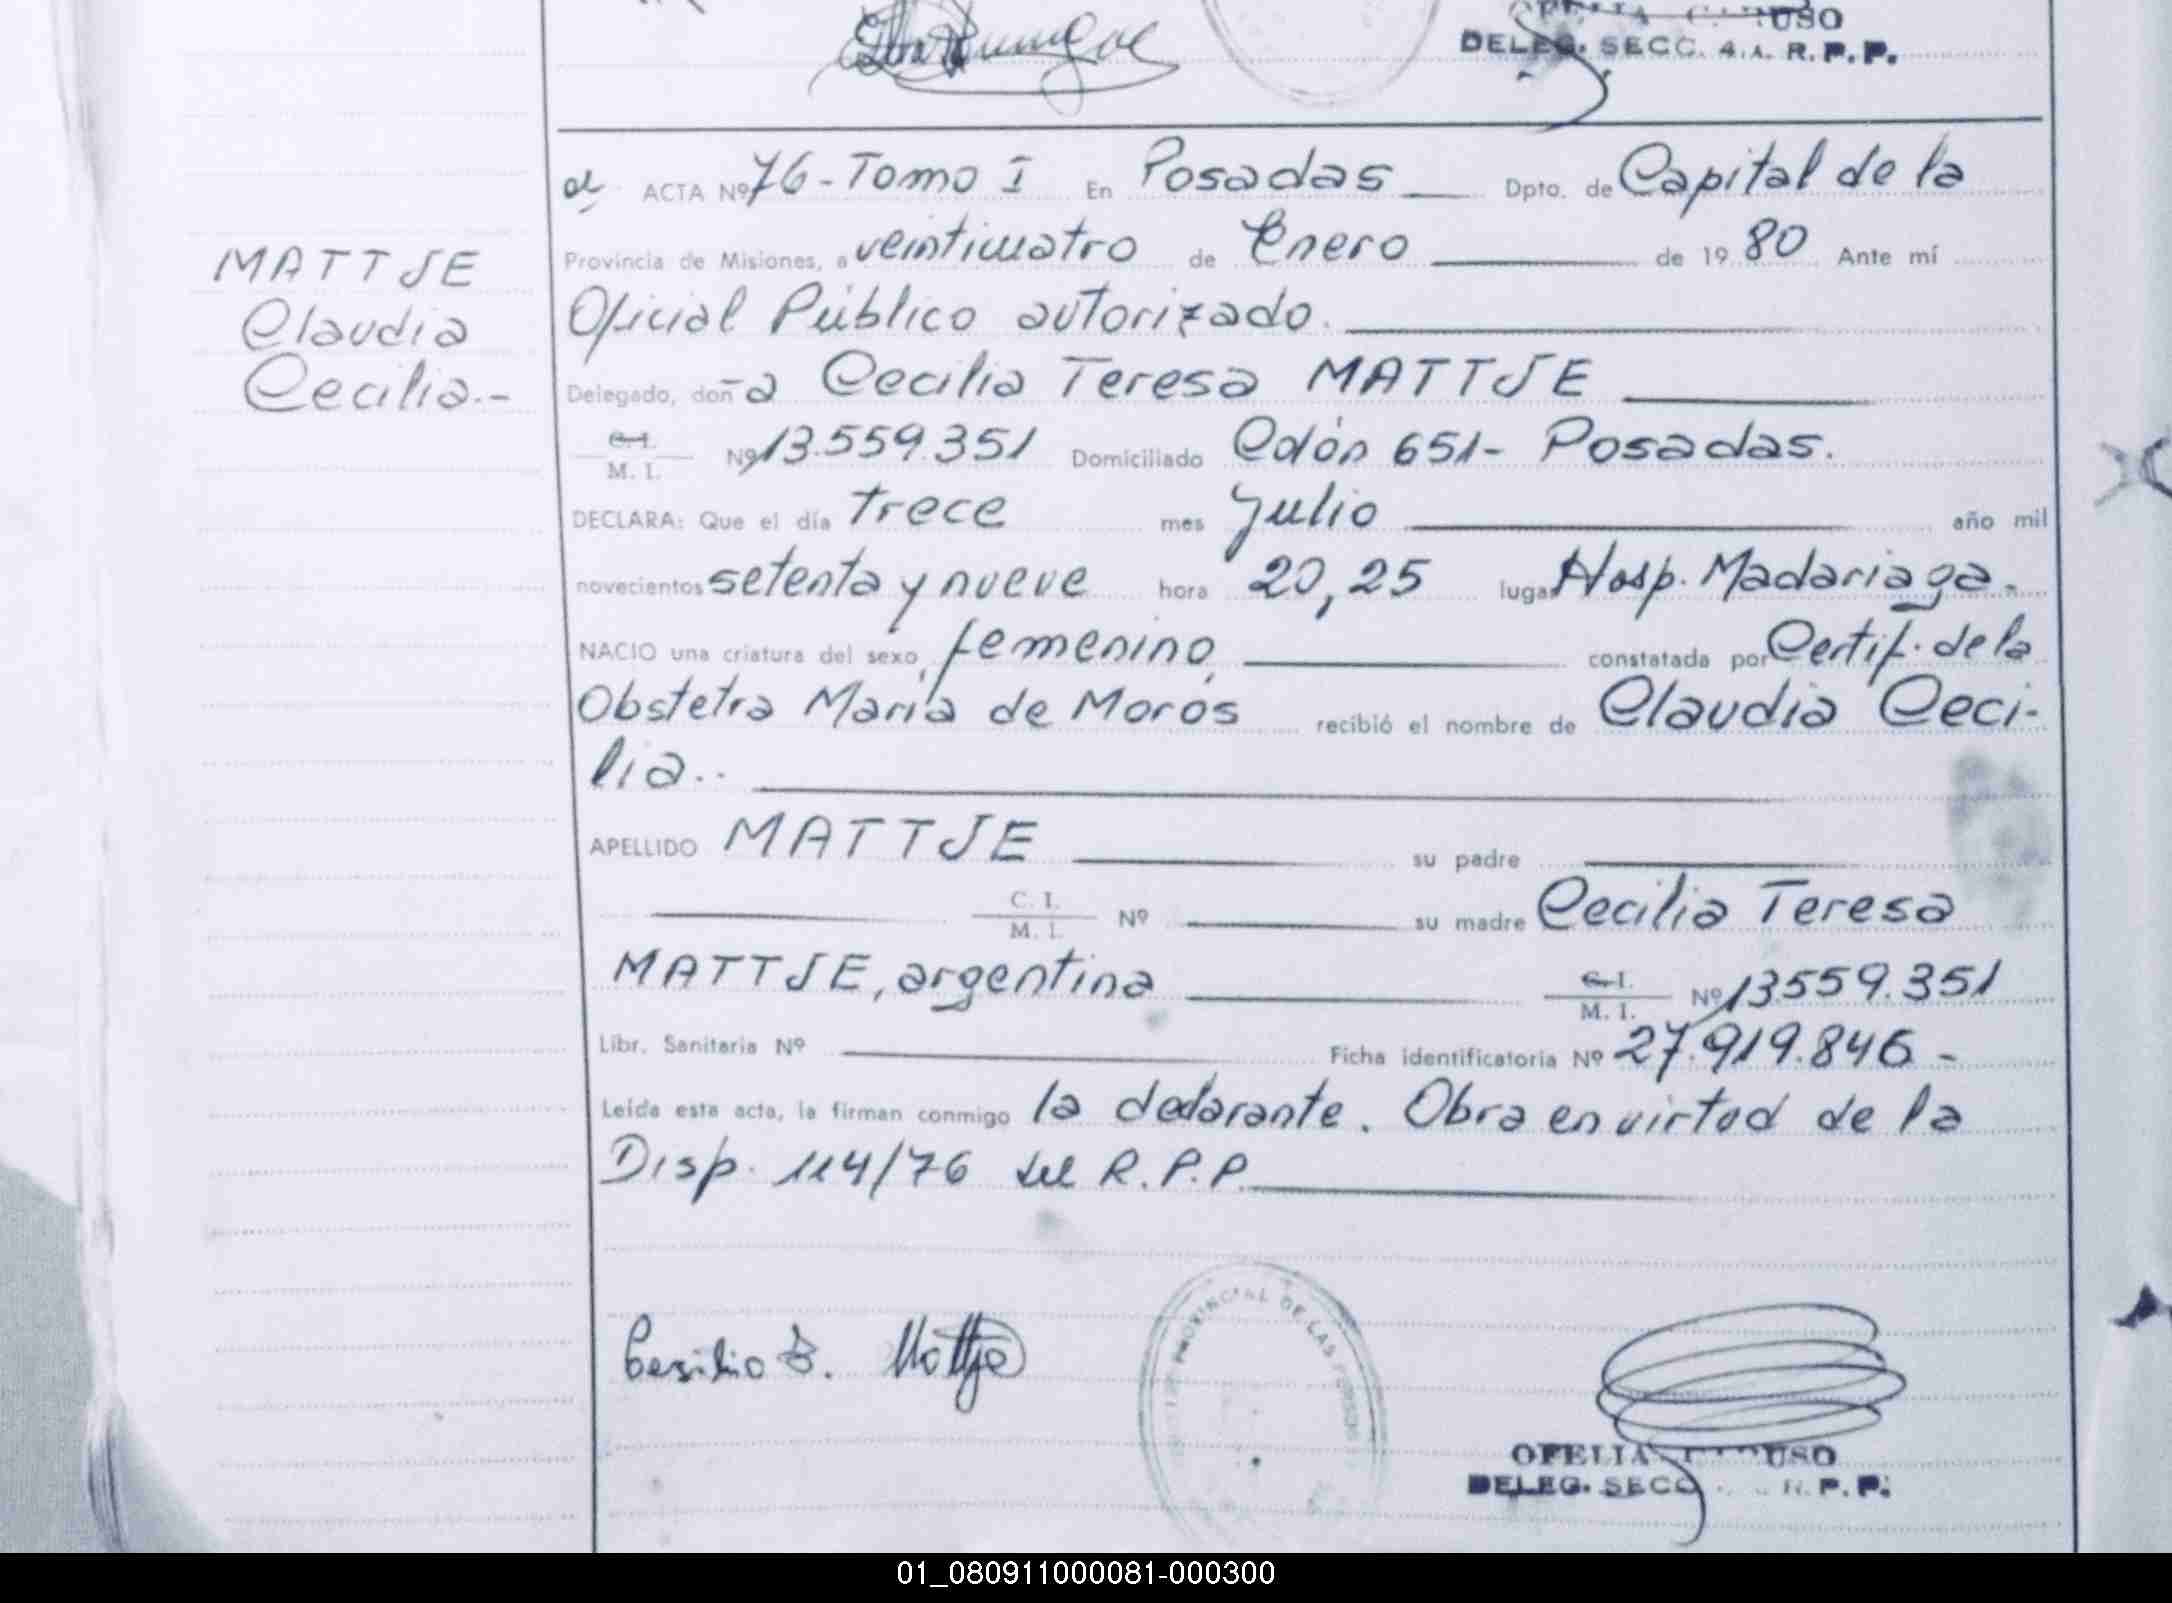 USO
DELEG. SECC. 4.A. R.P.P.
ACTA Nº 76 - Tomo I En Posadas Dpto. de Capital de la
MATTJE
Claudia
Cecilia.-
Provincia de Misiones, a veinticuatro de Enero de 1980 Ante mí
Oficial Público autorizado.
Delegado, doña Cecilia Teresa MATTJE
C.I. / M. I. Nº 13.559.351 Domiciliado Colón 651- Posadas.
DECLARA: Que el día trece mes Julio año mil
novecientos setenta y nueve hora 20,25 lugar Hosp. Madariaga.
NACIO una criatura del sexo femenino, constatada por Certif. de la
Obstetra María de Morós recibió el nombre de Claudia Ceci-
lia..
APELLIDO MATTJE su padre
C. I. / M. I. Nº su madre Cecilia Teresa
MATTJE, argentina C.I. / M. I. Nº 13559.351
Libr. Sanitaria Nº Ficha identificatoria Nº 27.919.846 -
Leída esta acta, la firman conmigo la declarante. Obra en virtud de la
Disp. 114/76 del R.P.P.
PROVINCIAL DE LAS
Mattje
OFELIA USO
DELEG. SECC R.P.P.
01_080911000081-000300